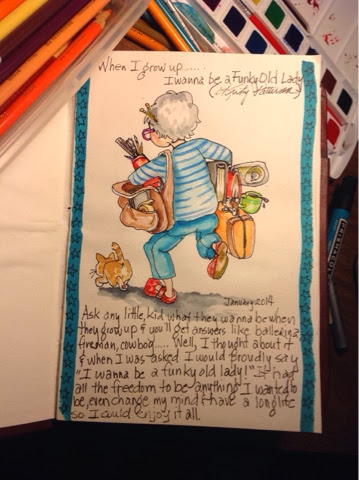 When I grow up......
I wanna be a Funky Old Lady
January 2014
Ask any little kid what they wanna be when
they grow up & you'll get answers like ballerina,
fireman, cowboy..... Well, I thought about it
& when I was asked I would proudly say
"I wanna be a funky old lady!" It had
all the freedom to be anything I wanted to
be, even change my mind & have a long life
so I could enjoy it all.